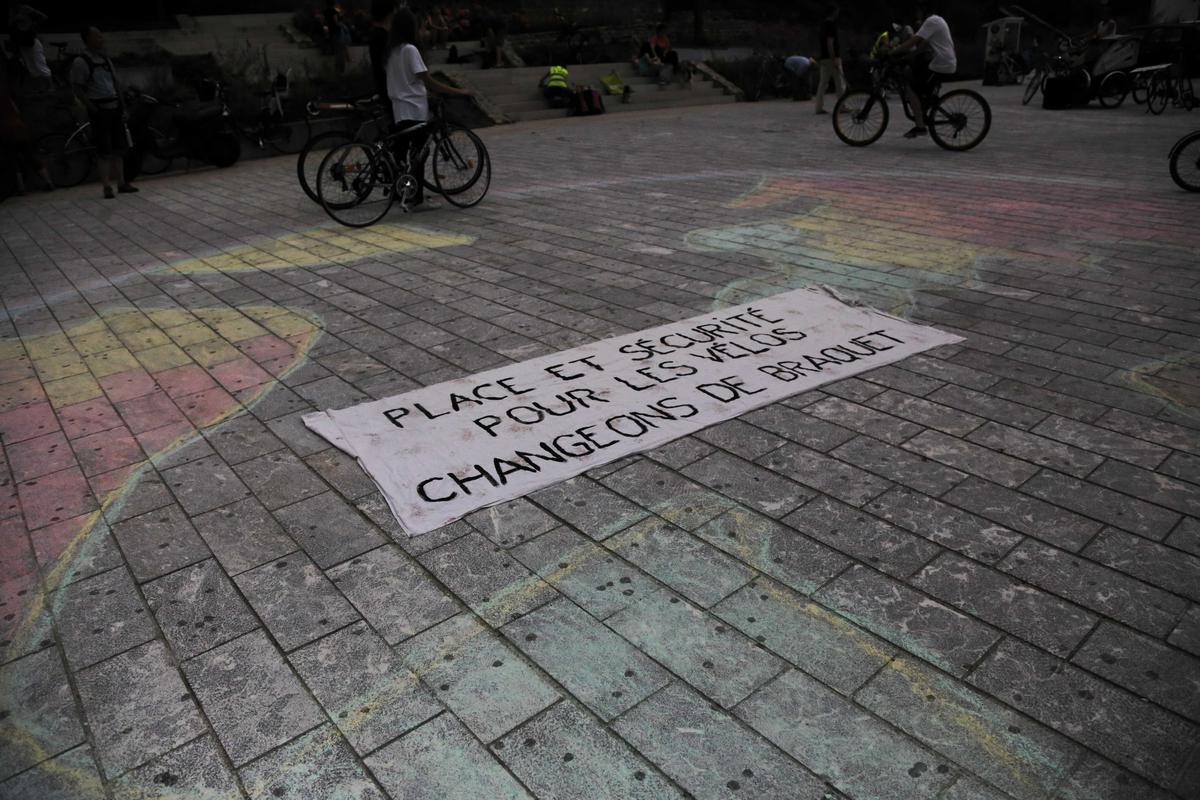 PLACE ET SÉCURITÉ
POUR LES VÉLOS
CHANGEONS DE BRAQUET